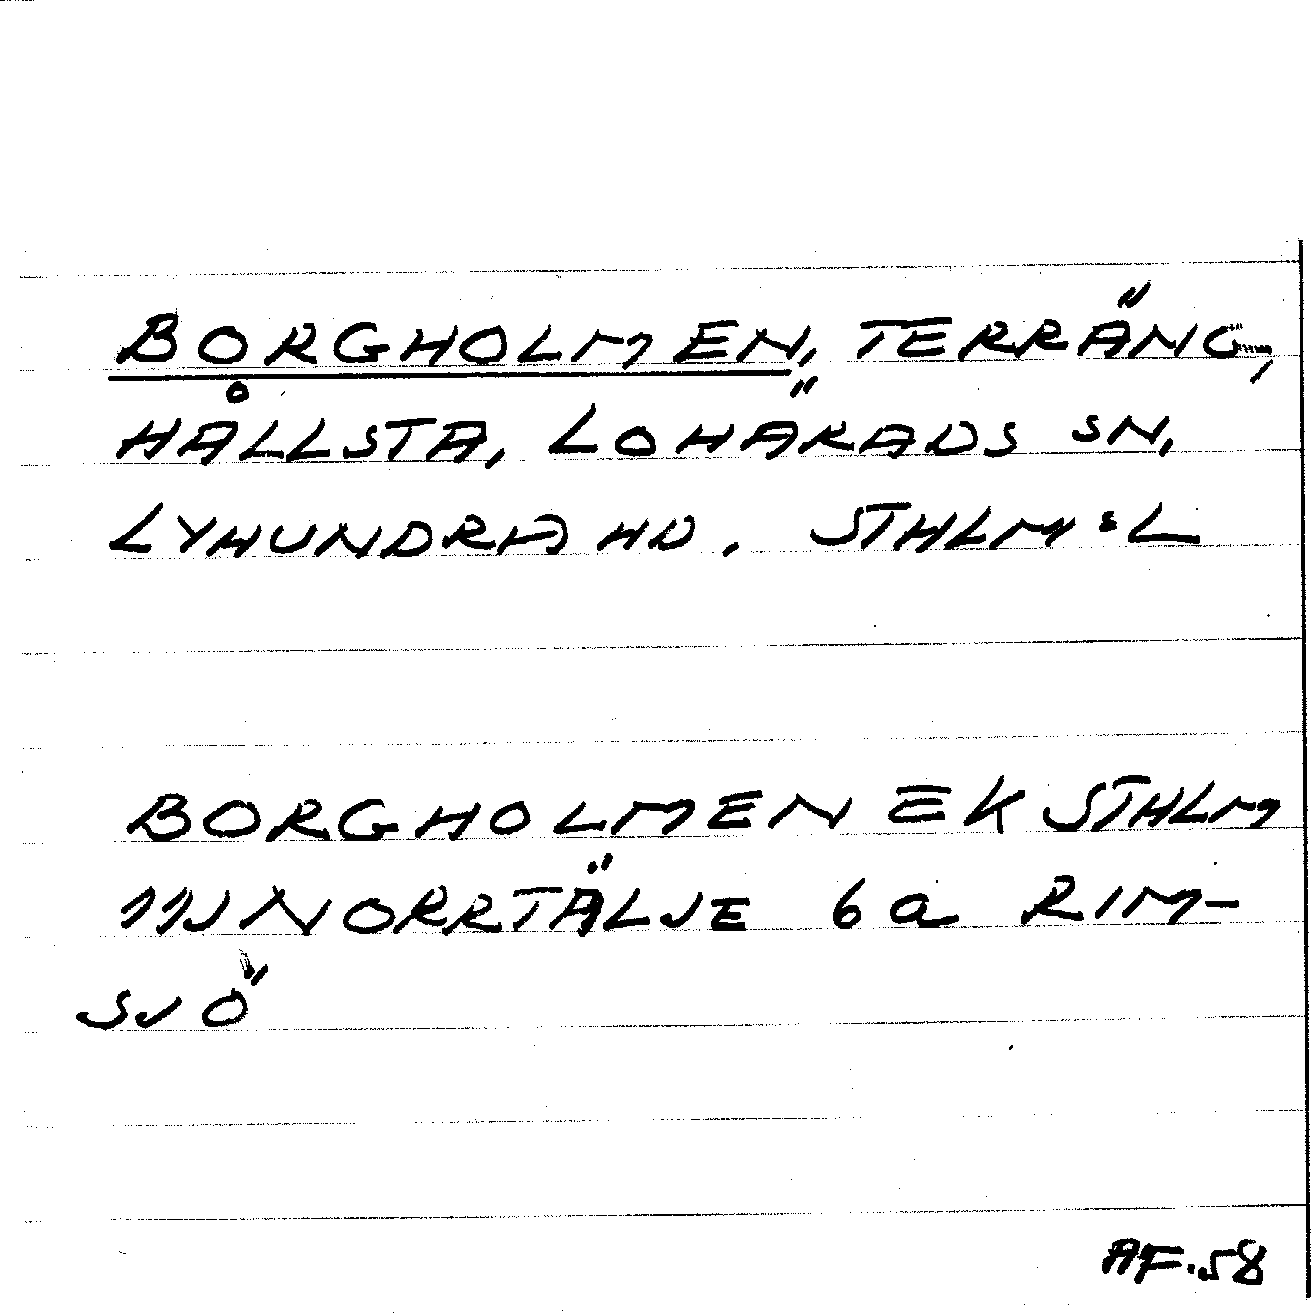 BORGHOLMEN, TERRÄNG,
HÅLLSTA, LOHÄRADS SN,
LYHUNDRA HD, STHLM:L
BORGHOLMEN EK STHLM
11J NORRTÄLJE 6a RIM-
SJÖ
AF.58